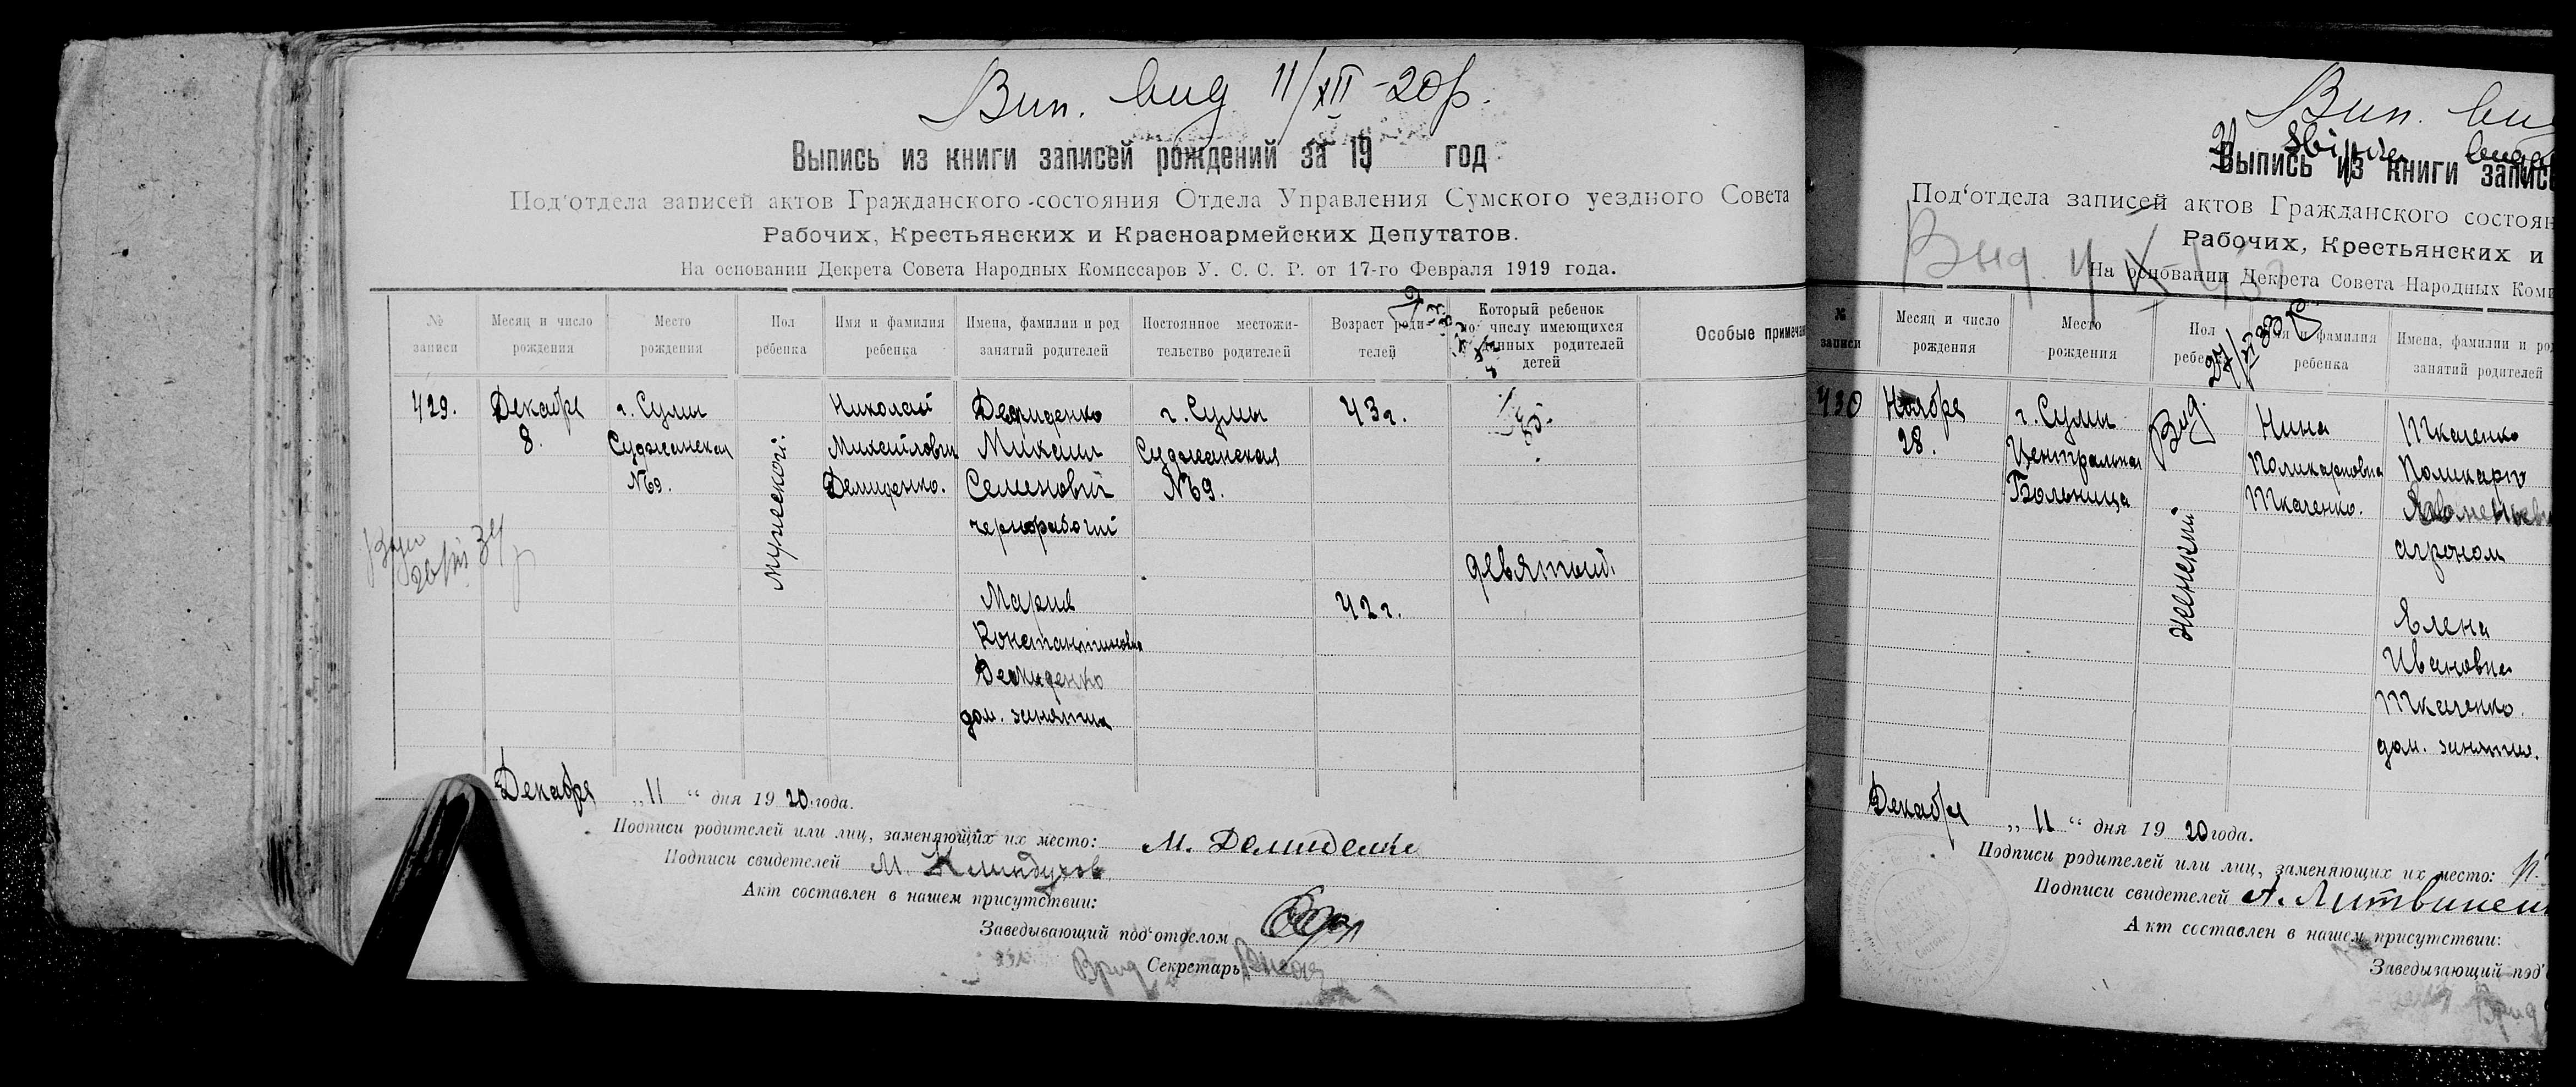 Вип. вид 11/XII-20р.
Выпись из книги записей рождений за 19 год
Под'отдела записей актов Гражданского-состояния Отдела Управления Сумского уездного Совета
Рабочих, Крестьянских и Красноармейских Депутатов.
На основании Декрета Совета Народных Комиссаров У. С. С. Р. от 17-го Февраля 1919 года.
№ записи
Месяц и число рождения
Место рождения
Пол ребенка
Имя и фамилия ребенка
Имена, фамилии и род занятий родителей
Постоянное местожительство родителей
Возраст родителей
Который ребенок по числу имеющихся данных родителей детей
Особые примечан
429.
Декабря
8.
г. Сумы
Суджанская
№9.
мужеской.
Николай
Михайлович
Демиденко.
Демиденко
Михаил
Семенович
чернорабочий
Мария
Константиновна
Демиденко
дом. занятия
г. Сумы
Суджанская
№9.
43 г.
42 г.
девятый.
Декабря „11“ дня 1920 года.
Подписи родителей или лиц, заменяющих их место: М. Демиденко
Подписи свидетелей М.
Акт составлен в нашем присутствии:
Заведывающий под'отделом
Врид Секретарь
Вип.
Выпись из книги записе
Под'отдела записей актов Гражданского состоян
Рабочих, Крестьянских и
На основании Декрета Совета Народных Коми
№ записи
Месяц и число рождения
Место рождения
Пол
ребе
фамилия
ребенка
Имена, фамилии и ро
занятий родителей
430
Ноября
28.
г. Сумы
Центральная
Больница
женский
Нина
Поликарповна
Ткаченко.
Ткаченко
Поликарп
агроном
Елена
Ивановна
Ткаченко.
дом. занятия.
Декабря „11“ дня 1920 года.
Подписи родителей или лиц, заменяющих их место:
Подписи свидетелей А. Литвинен
Акт составлен в нашем присутствии:
Заведывающий под'
Врид